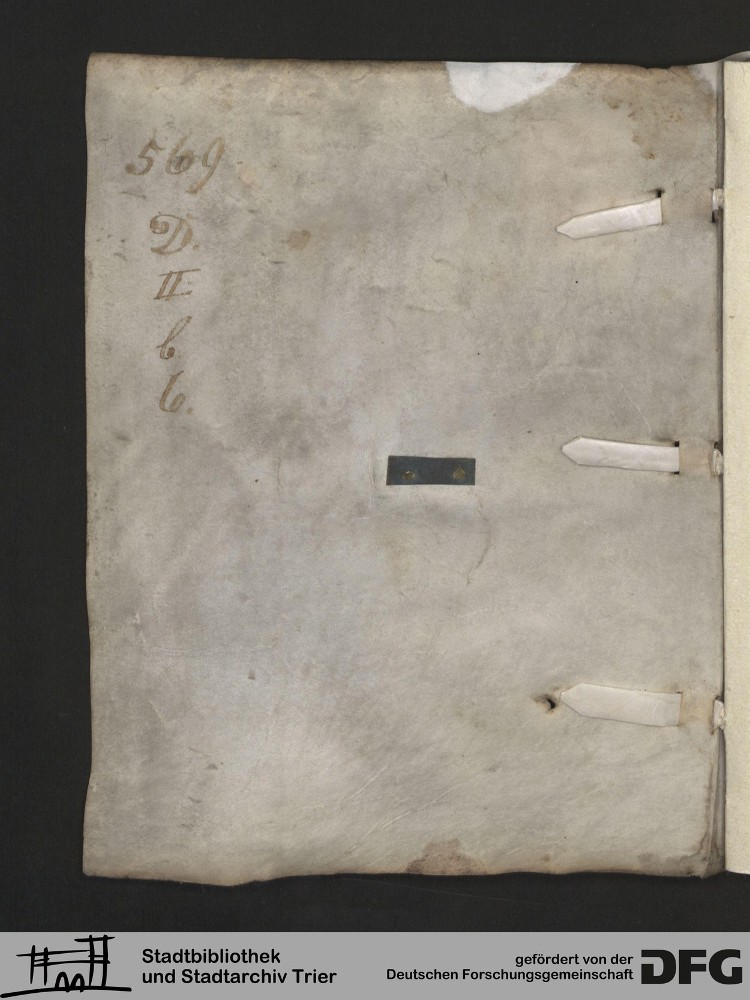 569
D.
II.
b.
6.
Stadtbibliothek
und Stadtarchiv Trier
gefördert von der
Deutschen Forschungsgemeinschaft
DFG